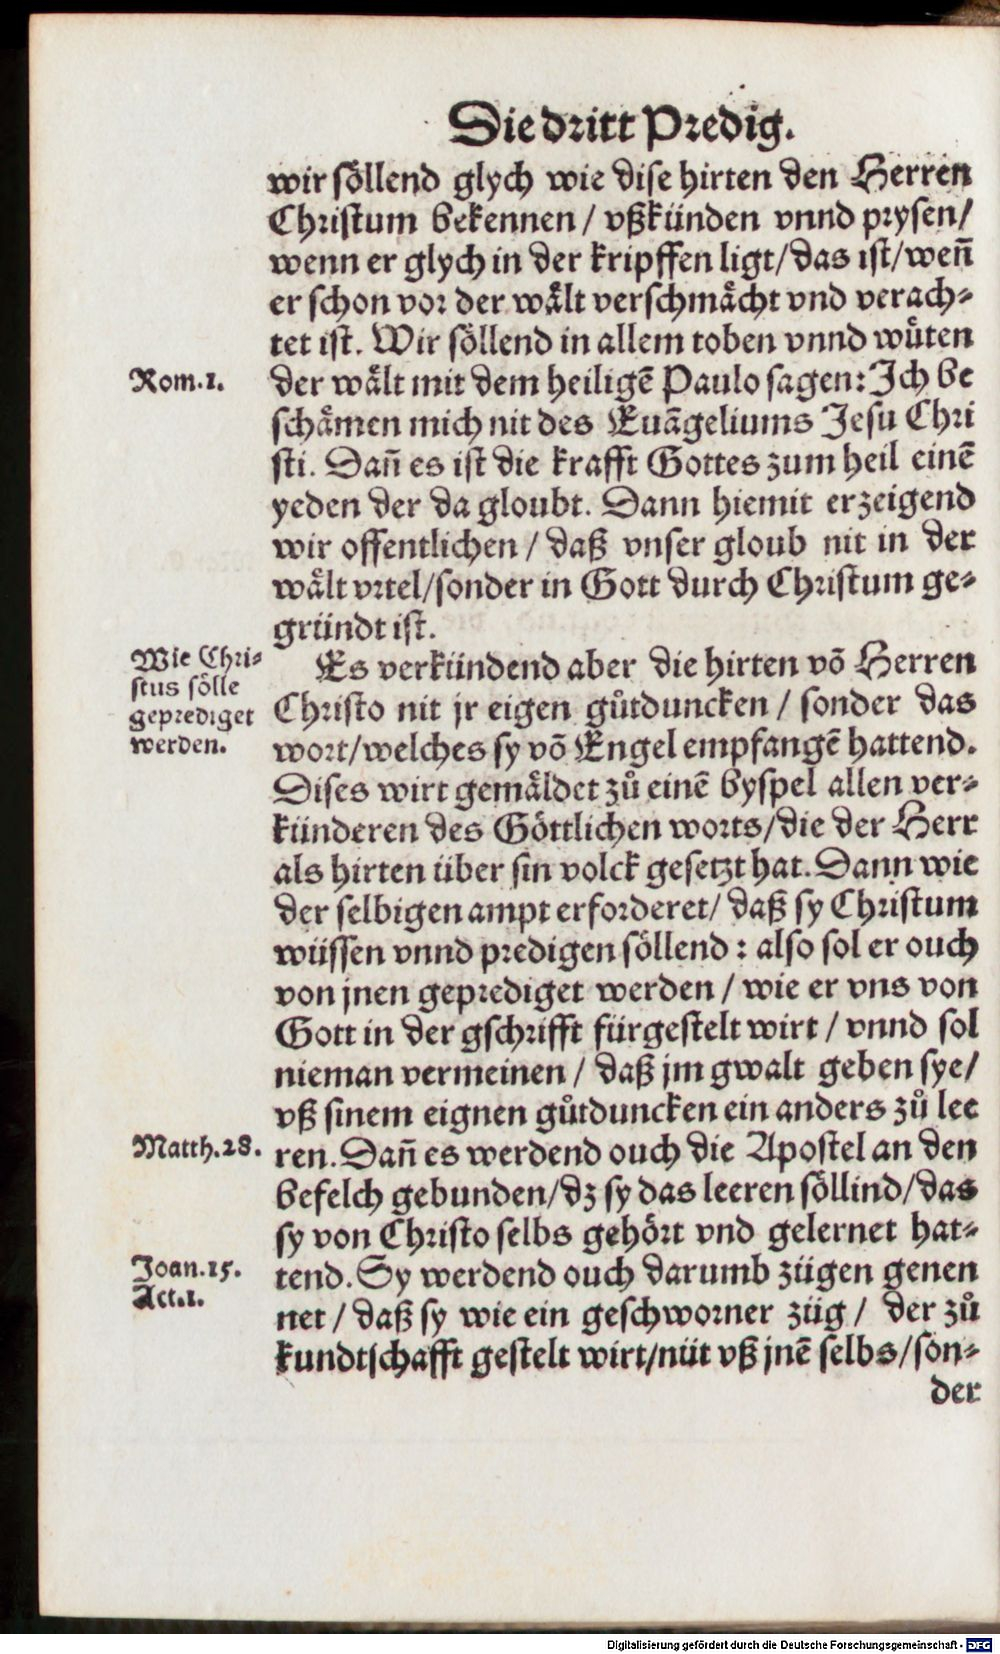 Die dritt Predig.
wir söllend glych wie dise hirten den Herren
Christum bekennen / vßkünden vnnd prysen/
wenn er glych in der kripffen ligt/das ist/weñ
er schon vor der wält verschmächt vnd verach-
tet ist. Wir söllend in allem toben vnnd wüten
Rom.1.
der wält mit dem heiligē Paulo sagen: Ich be
schämen mich nit des Euāgeliums Jesu Chri
sti. Dañ es ist die krafft Gottes zum heil einē
yeden der da gloubt. Dann hiemit erzeigend
wir offentlichen / daß vnser gloub nit in der
wält vrtel/sonder in Gott durch Christum ge-
gründt ist.
Wie Chri-
stus sölle
geprediget
werden.
Es verkündend aber die hirten võ Herren
Christo nit jr eigen gůtduncken / sonder das
wort/welches sy võ Engel empfangē hattend.
Dises wirt gemäldet zů einē byspel allen ver-
künderen des Göttlichen worts/die der Herr
als hirten über sin volck gesetzt hat. Dann wie
der selbigen ampt erforderet/ daß sy Christum
wüssen vnnd predigen söllend : also sol er ouch
von jnen geprediget werden / wie er vns von
Gott in der gschrifft fürgestelt wirt / vnnd sol
nieman vermeinen / daß jm gwalt geben sye/
vß sinem eignen gůtduncken ein anders zů lee
Matth.28.
ren. Dañ es werdend ouch die Apostel an den
befelch gebunden/dz sy das leeren söllind/das
sy von Christo selbs gehört vnd gelernet hat-
Joan.15.
Act.1.
tend. Sy werdend ouch darumb zügen genen
net / daß sy wie ein geschworner züg / der zů
kundtschafft gestelt wirt/nüt vß jnē selbs/son-
der
Digitalisierung gefördert durch die Deutsche Forschungsgemeinschaft - DFG